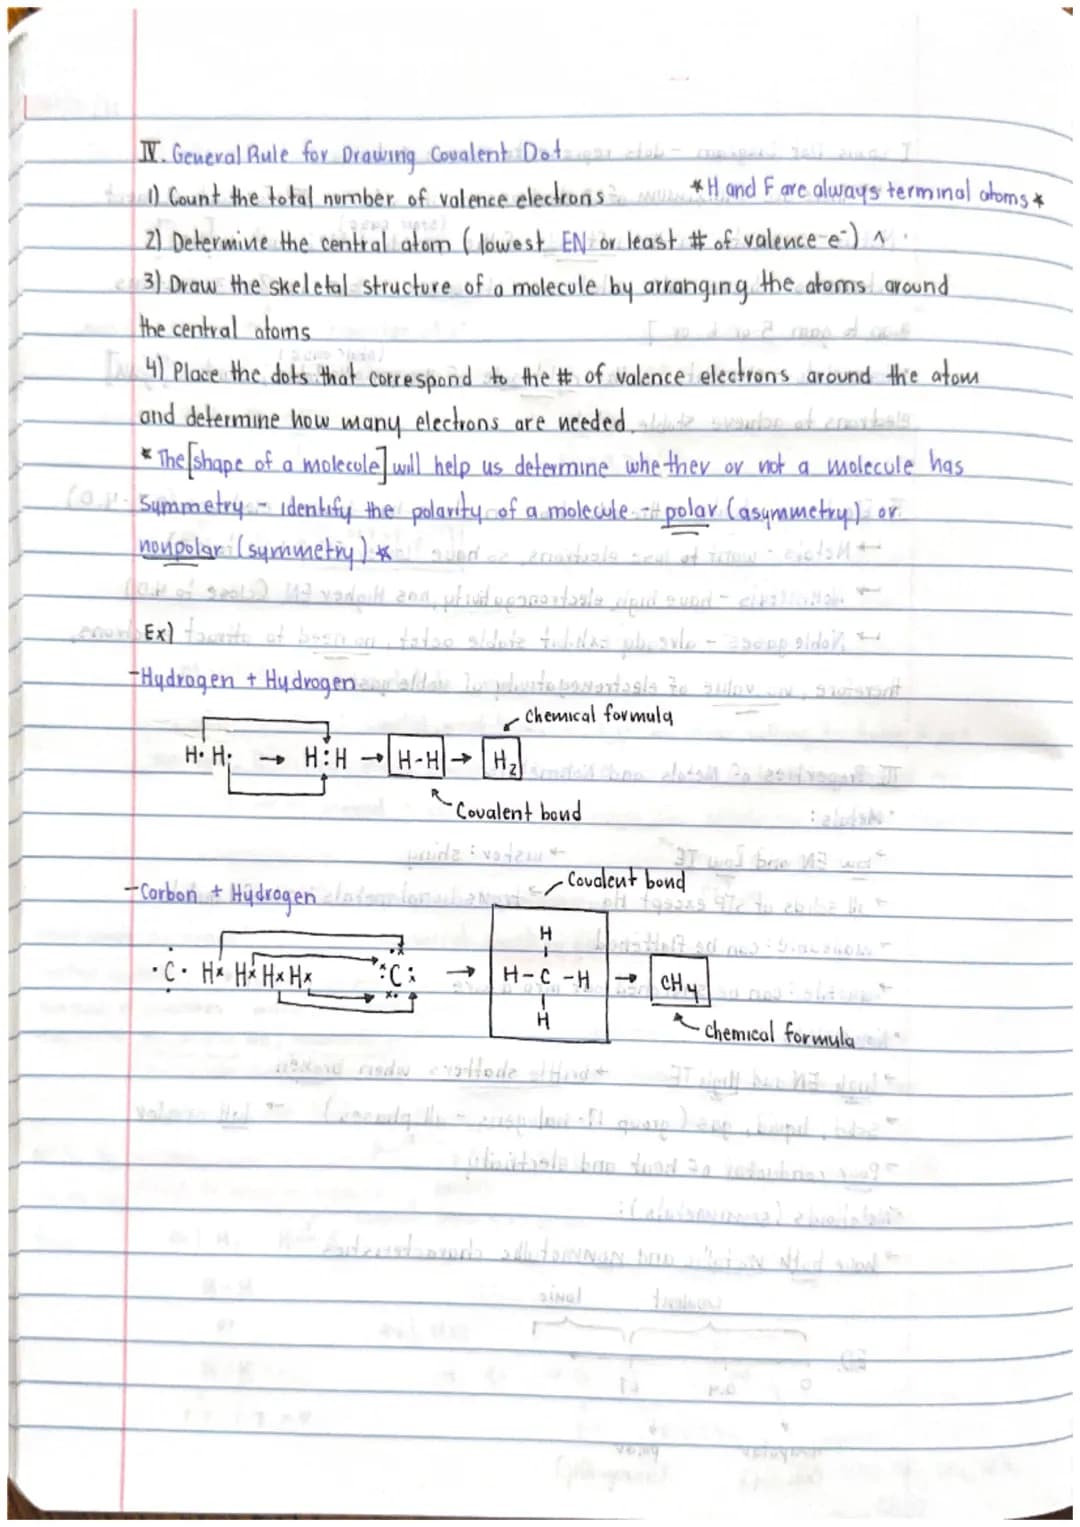 IV. General Rule for Drawing Covalent Dot
1) Count the total number of valence electrons *H and F are always terminal atoms*
2) Determine the central atom (lowest EN or least # of valence e⁻) ^
3) Draw the skeletal structure of a molecule by arranging the atoms around
the central atoms
4) Place the dots that correspond to the # of valence electrons around the atom
and determine how many electrons are needed.
* The [shape of a molecule] will help us determine whether or not a molecule has
symmetry - identify the polarity of a molecule - polar (asymmetry) or
nonpolar (symmetry) *
Ex)
-Hydrogen + Hydrogen
chemical formula
H· H· → H:H → H-H → H₂
Covalent bond
Covalent bond
-Carbon + Hydrogen
H
·C· Hx Hx Hx Hx C → H-C-H → CH₄
H
chemical formula